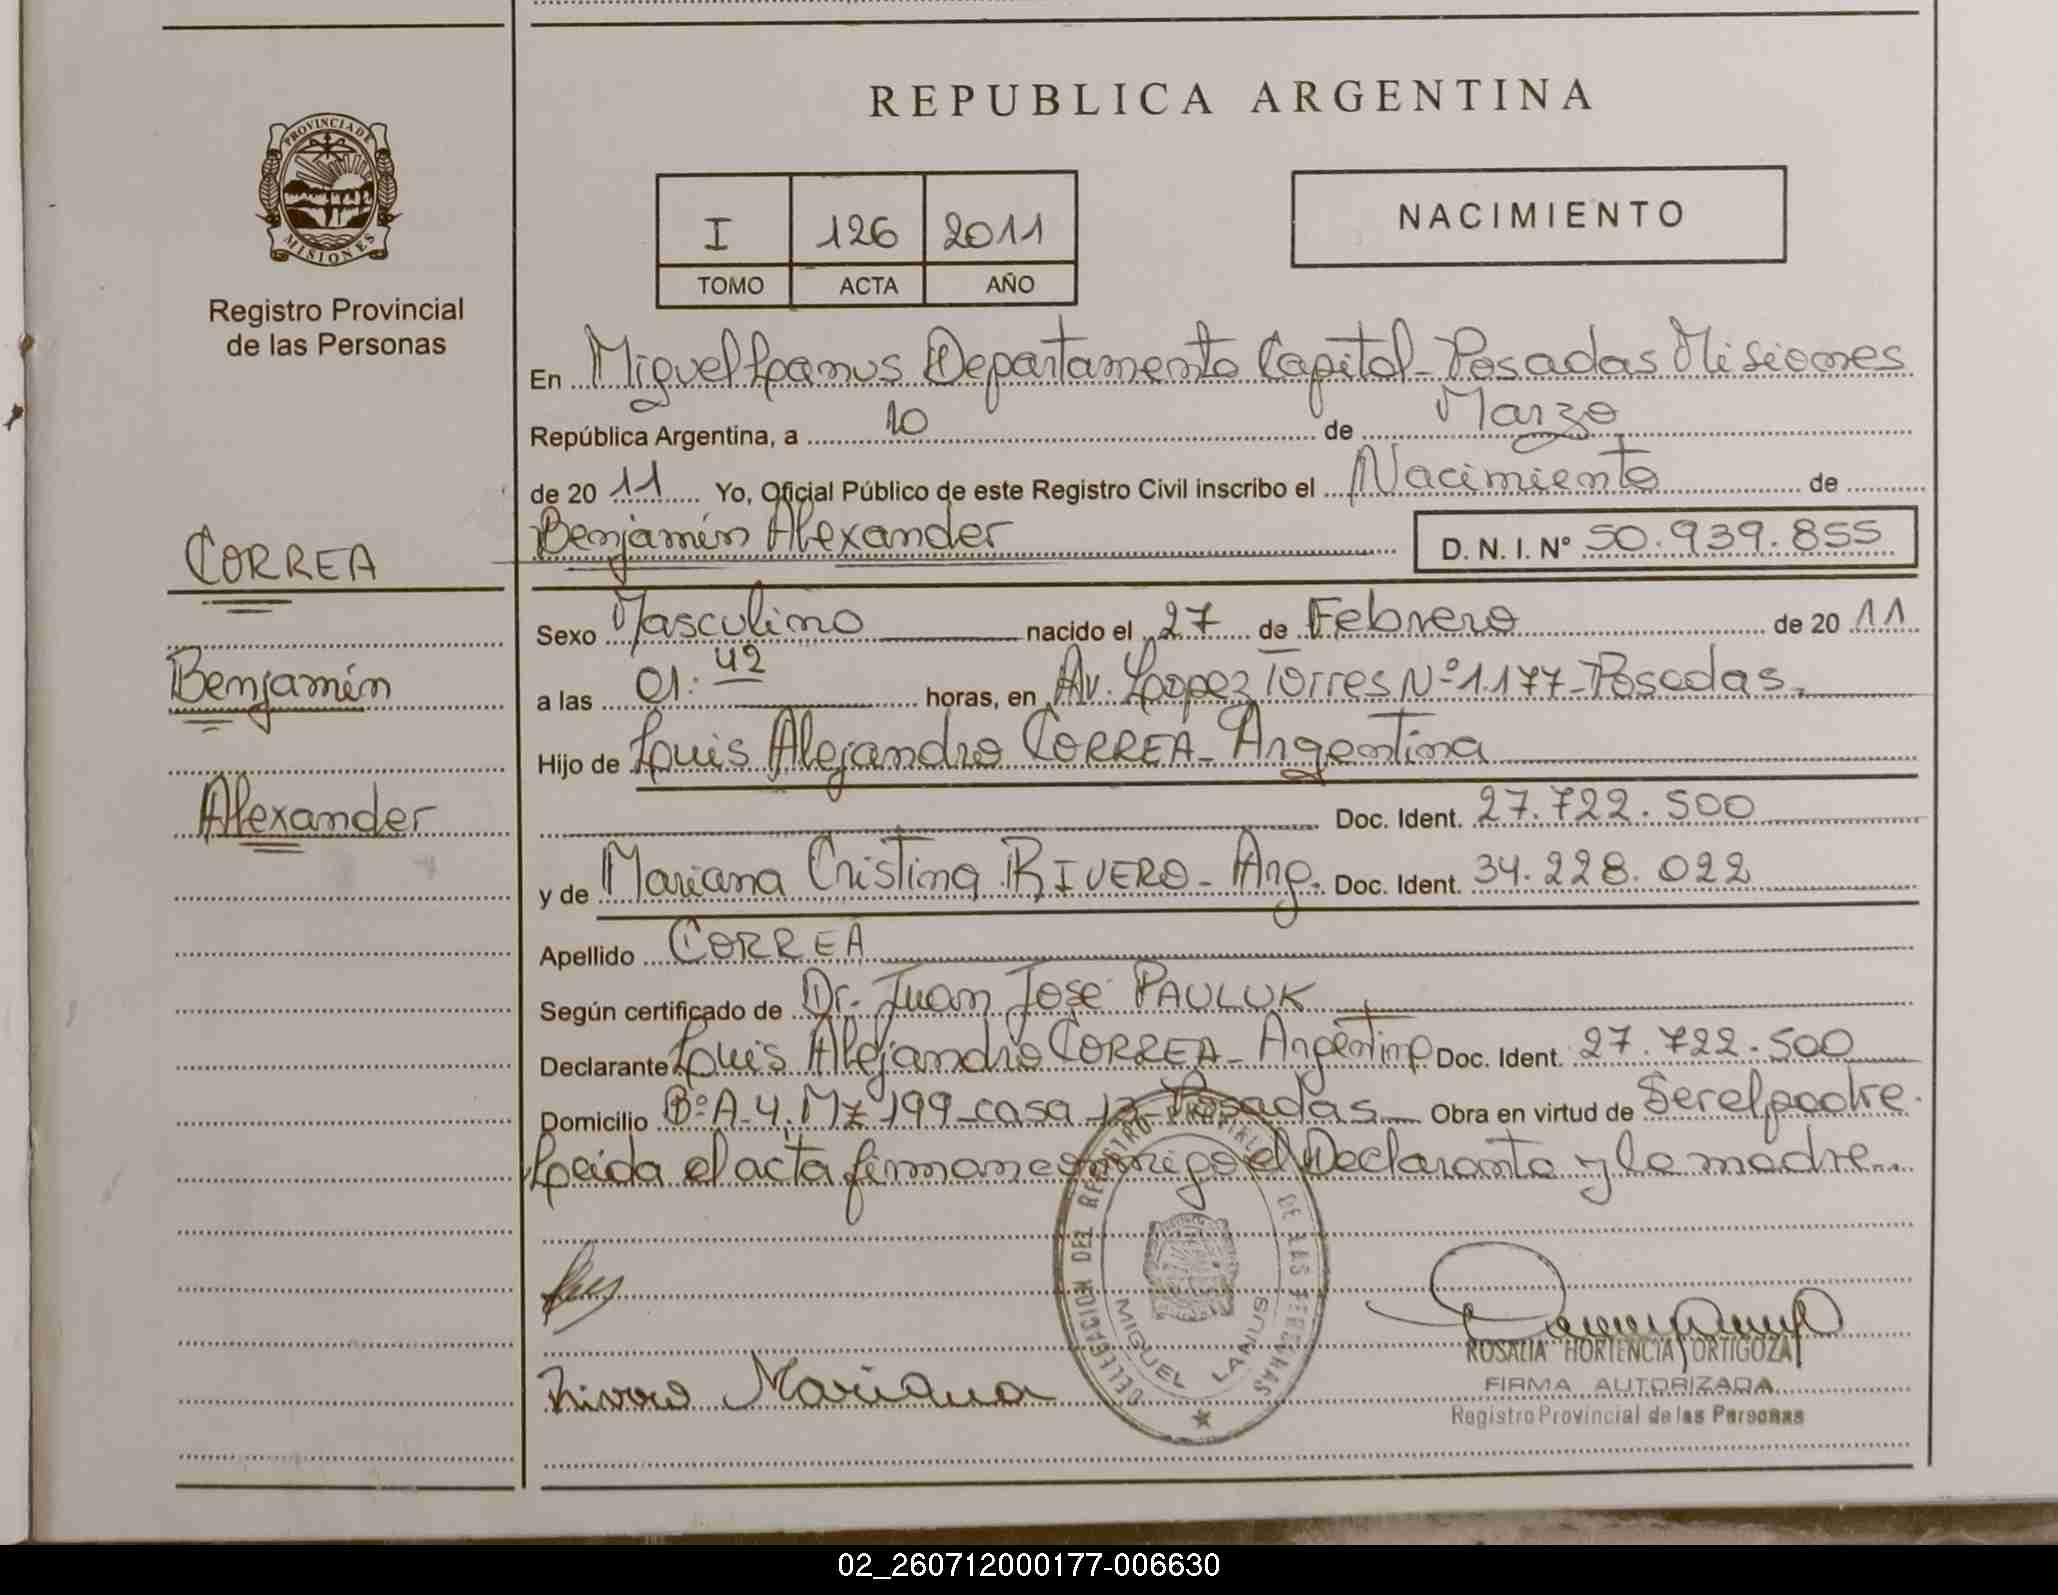 REPUBLICA ARGENTINA
PROVINCIA DE
MISIONES
Registro Provincial
de las Personas
I 126 2011
TOMO ACTA AÑO
NACIMIENTO
En Miguel Lanus Departamento Capital - Posadas Misiones
República Argentina, a 10 de Marzo
de 2011 Yo, Oficial Público de este Registro Civil inscribo el Nacimiento de
Benjamín Alexander D. N. I. Nº 50.939.855
CORREA
Benjamín
Alexander
Sexo Masculino nacido el 27 de Febrero de 2011
a las 01:42 horas, en Av. Lopez Torres Nº 1.177 - Posadas.
Hijo de Luis Alejandro CORREA - Argentina
Doc. Ident. 27.722.500
y de Mariana Cristina RIVERO - Arg. Doc. Ident. 34.228.022
Apellido CORREA
Según certificado de Dr. Juan José PAULUK
Declarante Luis Alejandro CORREA - Argentino Doc. Ident. 27.722.500
Domicilio Bº A-4. Mz 199 - casa 12 - Posadas Obra en virtud de Ser el padre.
Leida el acta firman conmigo el Declarante y la madre
DELEGACION DEL REGISTRO PROVINCIAL DE LAS PERSONAS
MIGUEL LANUS
Rivero Mariana
ROSALIA HORTENCIA ORTIGOZA
FIRMA AUTORIZADA
Registro Provincial de las Personas
02_260712000177-006630